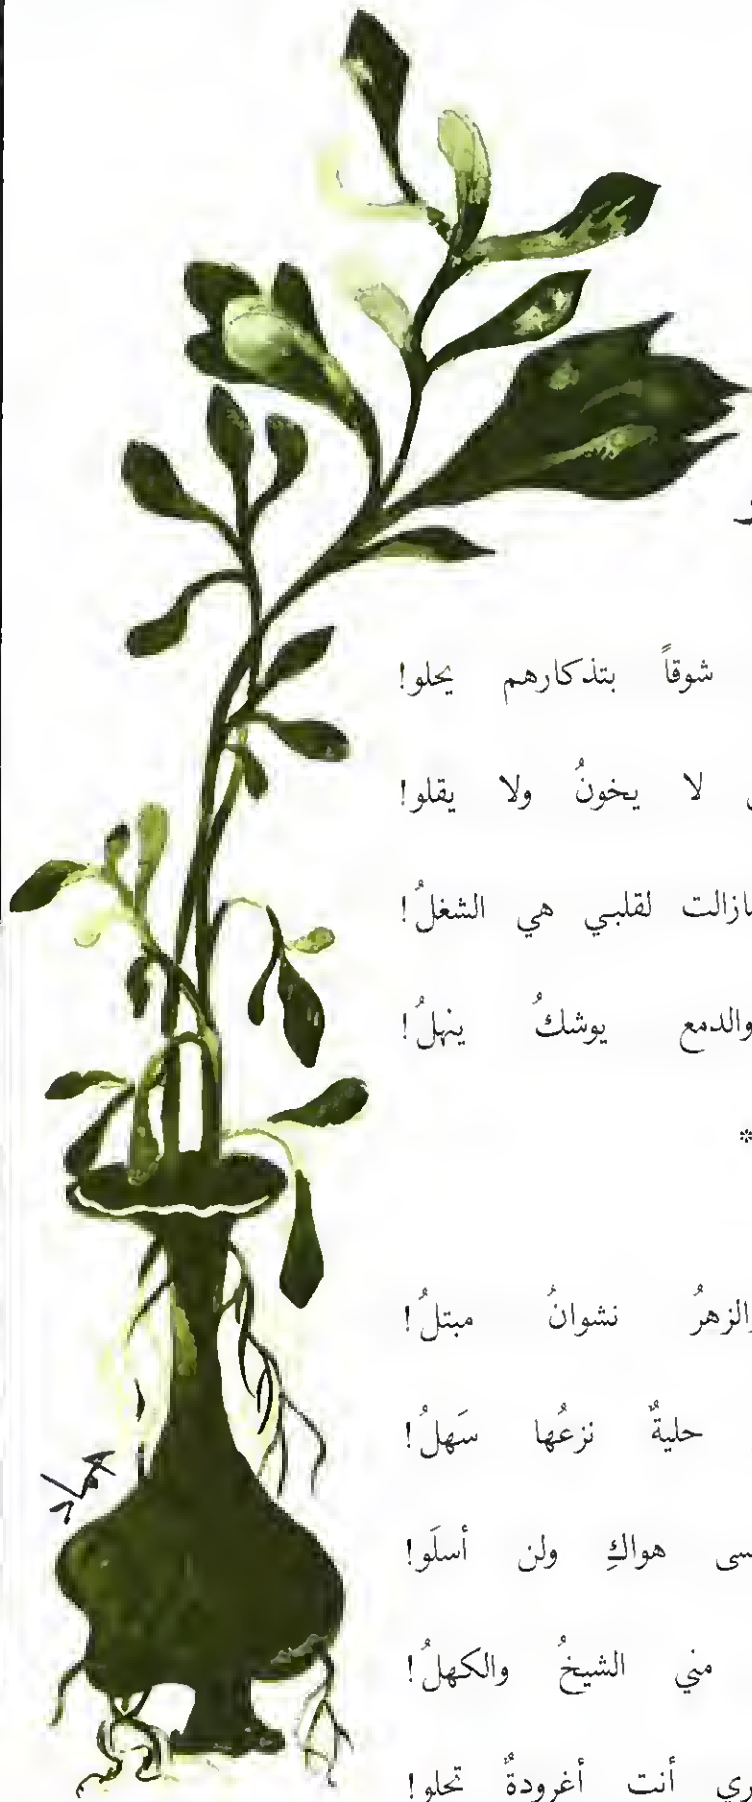 شوقاً بتذكارهم يحلو!
لا يخونُ ولا يقلو!
مازالت لقلبي هي الشغلُ!
والدمع يوشكُ ينهلُ!
*
والزهرُ نشوانُ مبتلُ!
حليةٌ نزعُها سَهلُ!
هواكِ ولن أسلَو!
مني الشيخُ والكهلُ!
أنت أغرودةٌ تحلو!